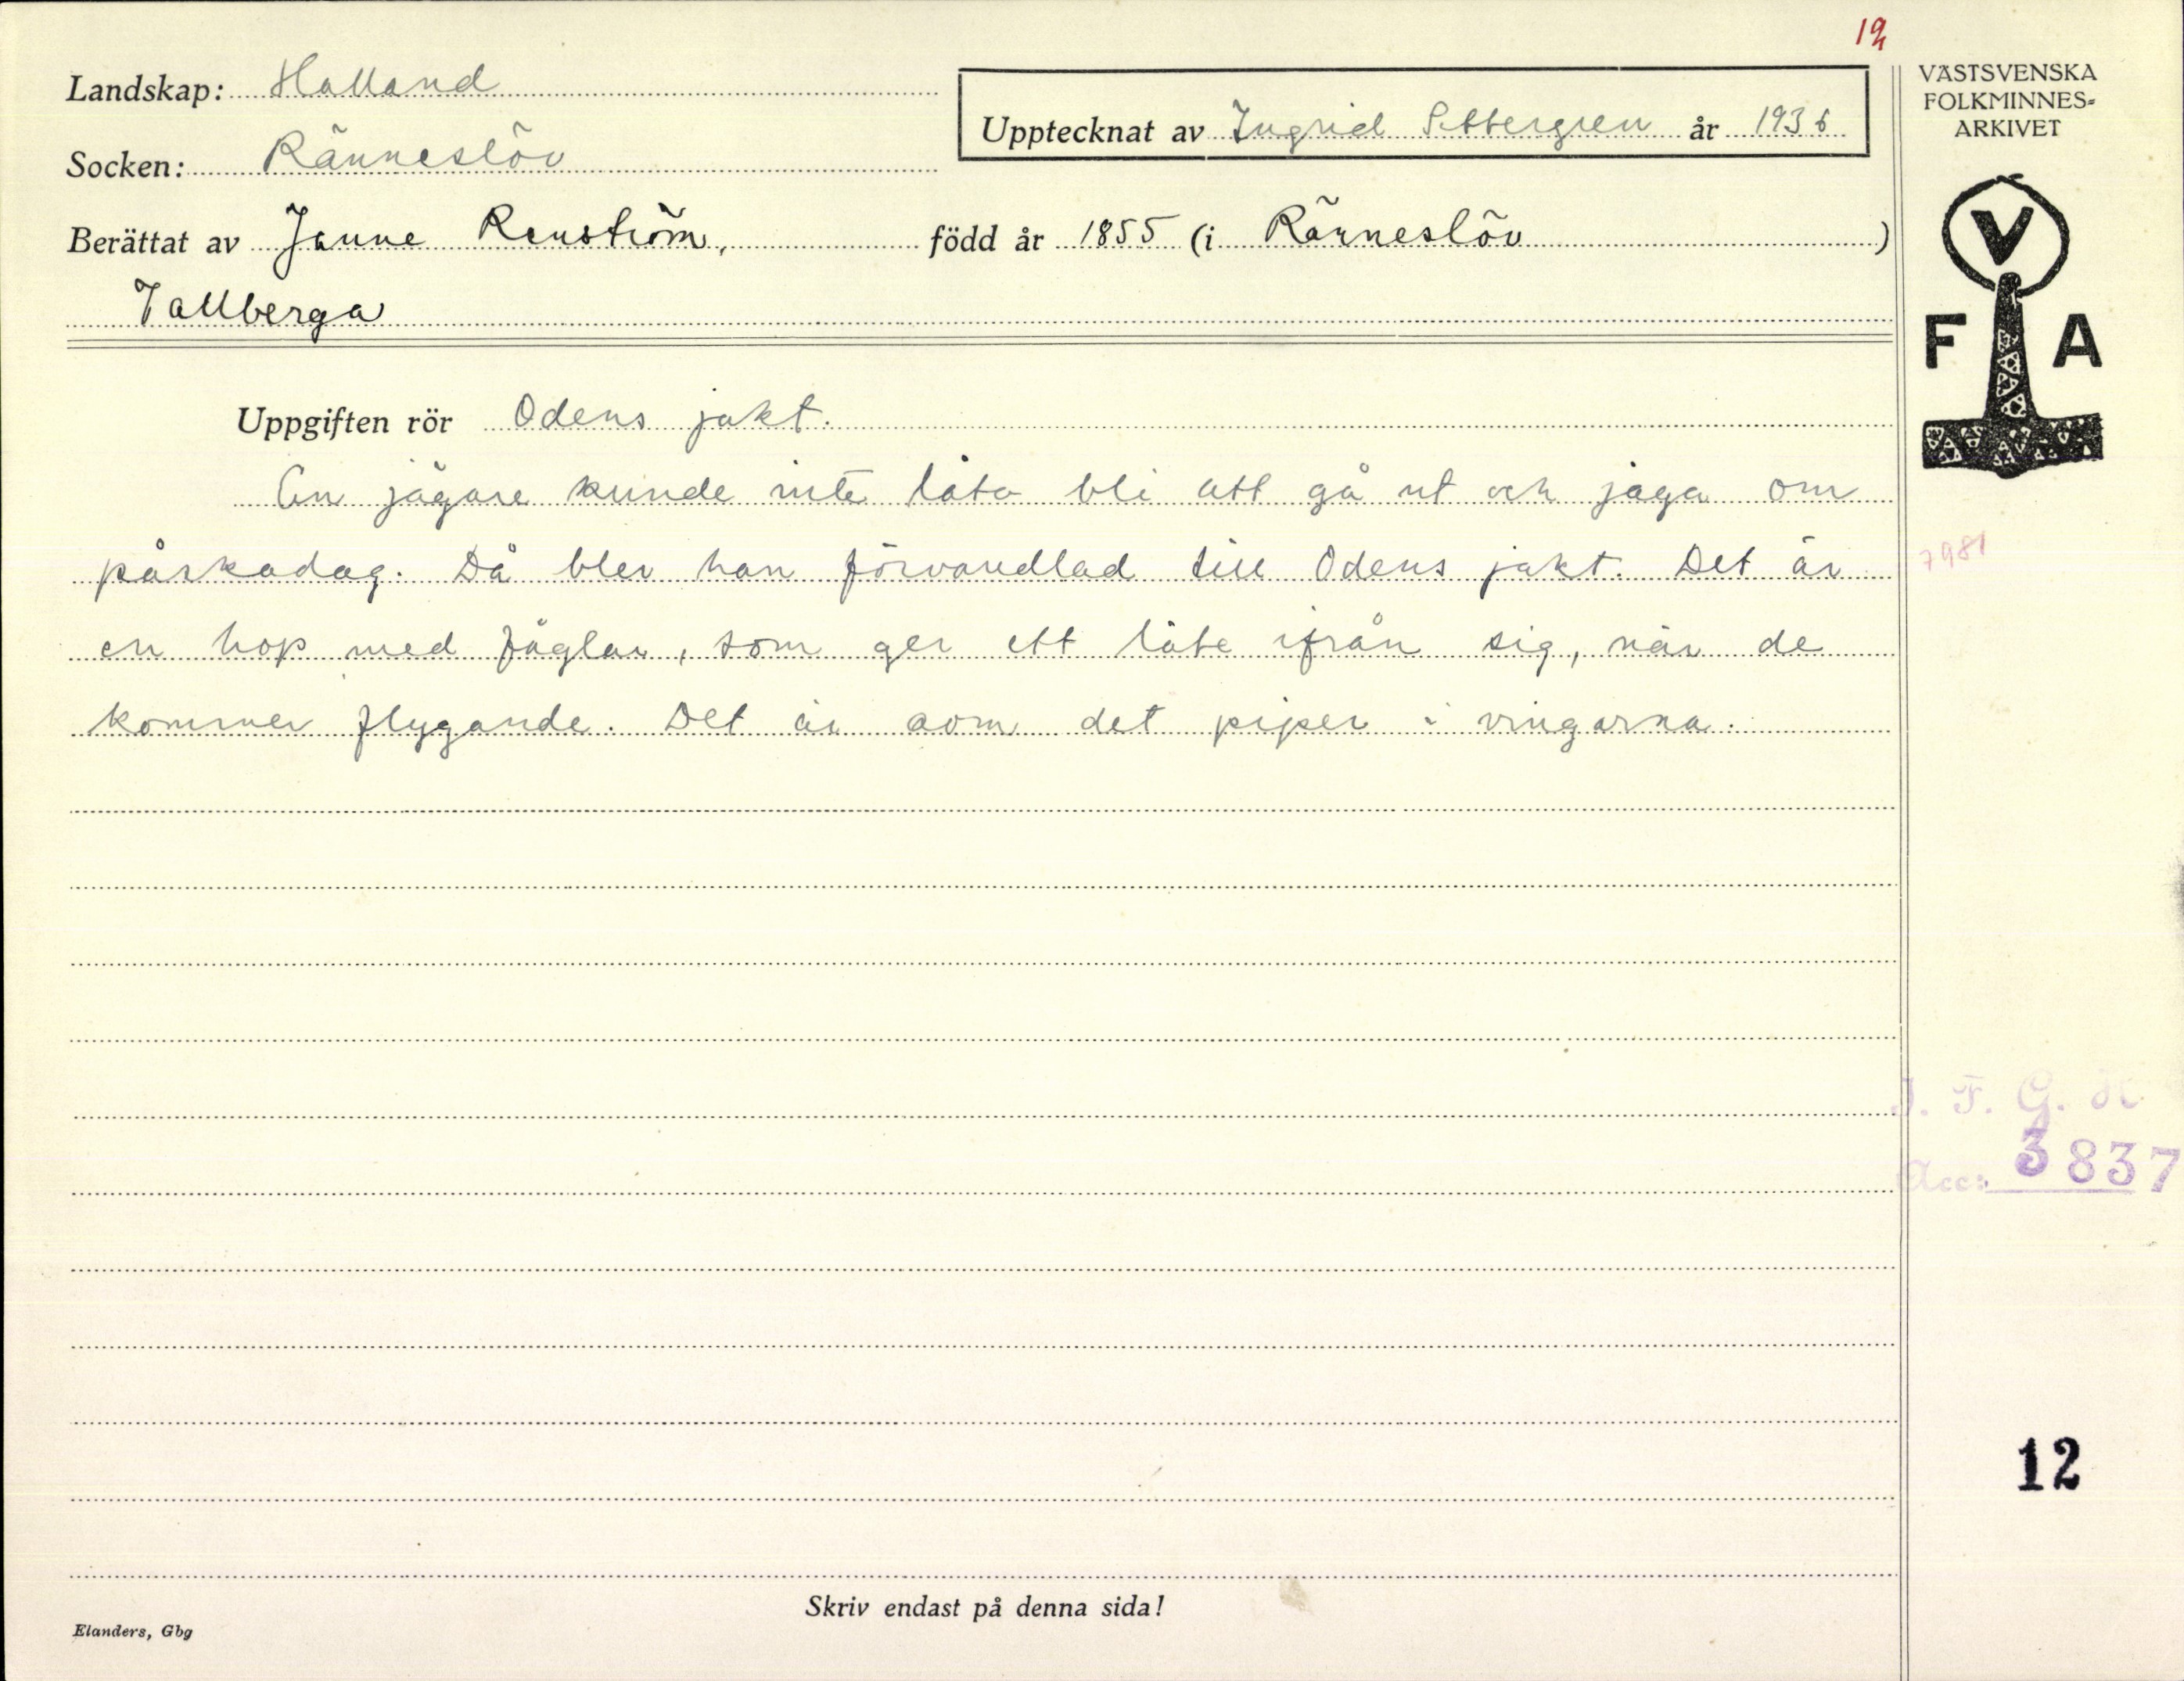 12
Landskap: Halland
Upptecknat av Ingrid Settergren år 1936
Socken: Ränneslöv
Berättat av Janne Renström, född år 1855 (i Ränneslöv)
Tallberga
Uppgiften rör Odens jakt.
En jägare kunde inte låta bli att gå ut och jaga om
påskadag. Då blev han förvandlad till Odens jakt. Det är
en hop med fåglar, som ger ett läte ifrån sig, när de
kommer flygande. Det är som det piper i vingarna.
Skriv endast på denna sida!
Elanders, Gbg
VÄSTSVENSKA
FOLKMINNES-
ARKIVET
V
F A
7981
I. F. G. H.
Acc: 3837
12